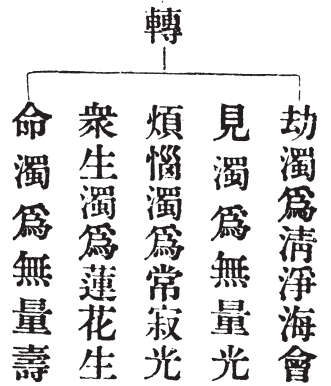 轉
劫濁爲清淨海會
見濁爲無量光
煩惱濁爲常寂光
衆生濁爲蓮花生
命濁爲無量壽